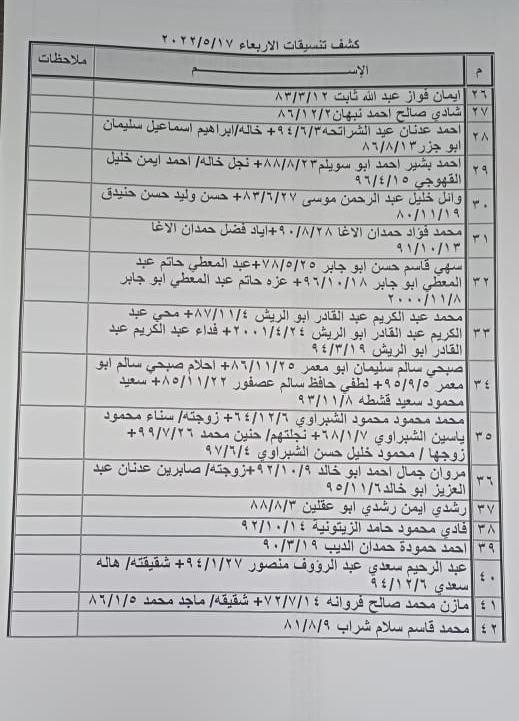 كشف تنسيقات الاربعاء ٢٠٢٢/٥/١٧
م الاســـــم ملاحظات
٢٦ ايمان فواز عبد الله ثابت ٨٣/٣/١٢
٢٧ شادي صالح احمد نبهان ٨٦/١٢/٢
٢٨ احمد عدنان عيد الشراتحه ٩٤/٦/٣+ خاله/ابراهيم اسماعيل سليمان
ابو جزر ٨٦/٨/١٣
٢٩ احمد بشير احمد ابو سويلم ٨٨/٨/٢٣+ نجل خاله/ احمد ايمن خليل
القهوجي ٩٦/٤/١٥
٣٠ وائل خليل عبد الرحمن موسى ٨٣/٦/٢٧+ حسن وليد حسن حنيدق
٨٠/١١/١٩
٣١ محمد فؤاد حمدان الاغا ٩٠/٨/٢٨+اياد فضل حمدان الاغا
٩١/١٠/١٣
٣٢ سهي قاسم حسن ابو جابر ٧٨/٥/٢٥+عبد المعطي حاتم عبد
المعطي ابو جابر ٩٦/١٠/١٨+ عزه حاتم عبد المعطي ابو جابر
٢٠٠٠/١١/٨
٣٣ محمد عبد الكريم عبد القادر ابو الريش ٨٧/١١/٤+ محي عبد
الكريم عبد القادر ابو الريش ٢٠٠١/٤/٢٤+ فداء عبد الكريم عبد
القادر ابو الريش ٩٤/٣/١٩
٣٤ صبحي سالم سليمان ابو معمر ٨٦/١١/٢٥+ احلام صبحي سالم ابو
معمر ٩٥/٩/٥+ لطفي حافظ سالم عصفور ٨٥/١١/٢٢+ سعيد
محمود سعيد قشطه ٩٣/١١/٨
٣٥ محمد محمود محمود الشبراوي ٦٤/١٢/٦+ زوجته/ سناء محمود
ياسين الشبراوي ٦٨/١/٧+ نجلتهم/ حنين محمد ٩٩/٧/٢٦+
زوجها / محمود خليل حسن الشبراوي ٩٧/٦/٤
٣٦ مروان جمال احمد ابو خالد ٩٢/١٠/٩+زوجته/ صابرين عدنان عبد
العزيز ابو خالد ٩٥/١١/٦
٣٧ رشدي ايمن رشدي ابو عقلين ٨٨/٨/٣
٣٨ فادي محمود حامد الزيتونية ٩٢/١٠/١٤
٣٩ احمد حمودة حمدان الديب ٩٠/٣/١٩
٤٠ عبد الرحيم سعدي عبد الرؤوف منصور ٩٤/١/٢٧+ شقيقته/ هاله
سعدي ٩٤/١٢/٦
٤١ مازن محمد صالح فروانه ٧٢/٧/١٤+ شقيقه/ ماجد محمد ٨٦/١/٥
٤٢ محمد قاسم سلام شراب ٨١/٨/٩